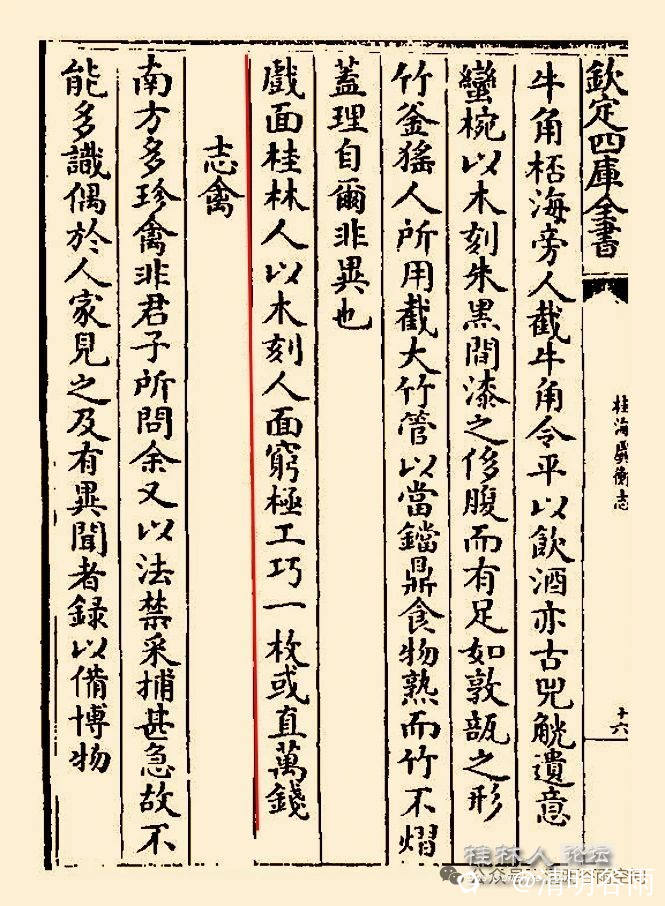 欽定四庫全書
桂海虞衡志
十六
牛角桮海旁人截牛角令平以飲酒亦古兕觥遺意
蠻椀以木刻朱黑間漆之侈腹而有足如敦瓿之形
竹釜猺人所用截大竹管以當鐺鼎食物熟而竹不熠
蓋理自爾非異也
戲面桂林人以木刻人面窮極工巧一枚或直萬錢
志禽
南方多珍禽非君子所問余又以法禁采捕甚急故不
能多識偶於人家見之及有異聞者録以備博物
桂林人论坛